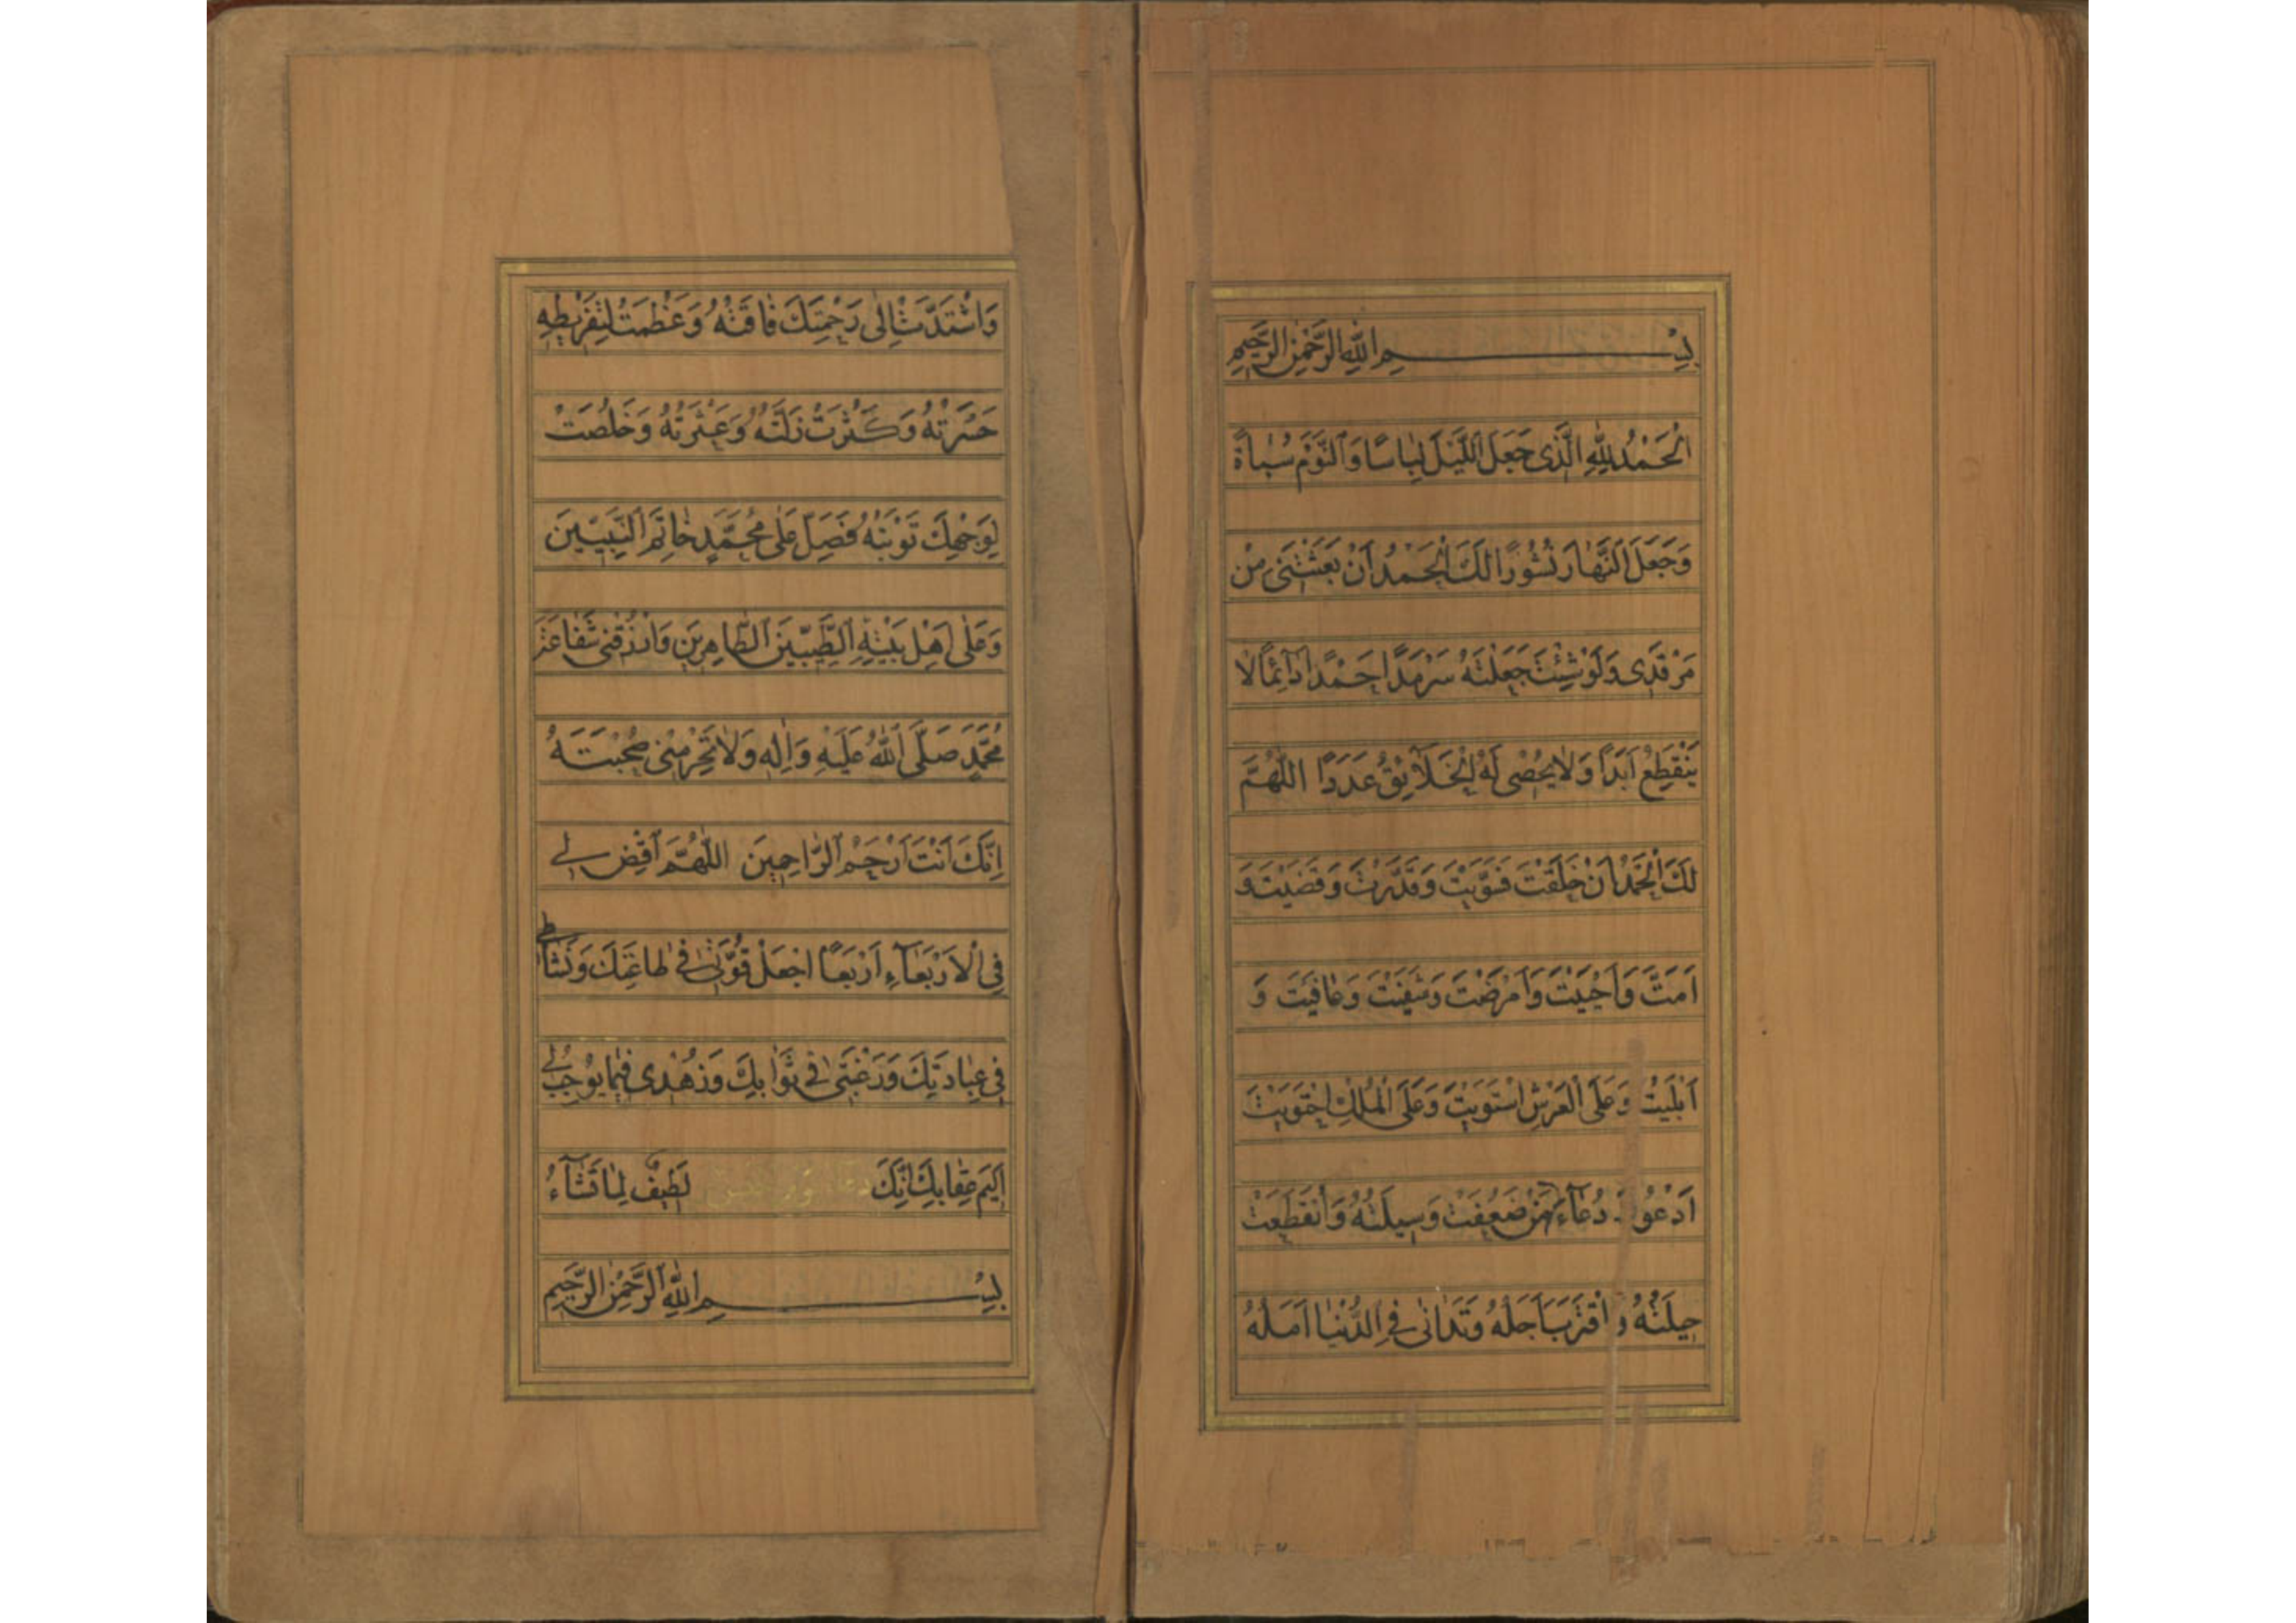 بِسْمِ اللّٰهِ الرَّحْمٰنِ الرَّحيمِ
اَلْحَمْدُ لِلّٰهِ الَّذى جَعَلَ اللَّيْلَ لِبٰاسًا وَالنَّوْمَ سُبٰاةً
وَجَعَلَ النَّهٰارَ نُشُورًا لَكَ الْحَمْدُ اَنْ بَعَثْتَنى مِنْ
مَرْقَدى وَلَوْ شِئْتَ جَعَلْتَهُ سَرْمَدًا حَمْدًا دٰآئِمًا لٰا
يَنْقَطِعُ اَبَدًا وَلٰا يُحْصى لَهُ الْخَلٰآئِقُ عَدَدًا اَللّٰهُمَّ
لَكَ الْحَمْدُ اَنْ خَلَقْتَ فَسَوَّيْتَ وَقَدَّرْتَ وَقَضَيْتَ وَ
اَمَتَّ وَاَحْيَيْتَ وَاَمْرَضْتَ وَشَفَيْتَ وَعٰافَيْتَ وَ
اَبْلَيْتَ وَعَلَى الْعَرْشِ اسْتَوَيْتَ وَعَلَى الْمُلْكِ احْتَوَيْتَ
اَدْعُوكَ دُعٰآءَ مَنْ ضَعُفَتْ وَسيلَتُهُ وَانْقَطَعَتْ
حيلَتُهُ وَاقْتَرَبَ اَجَلُهُ وَتَدٰانٰى فِى الدُّنْيٰا اَمَلُهُ
وَاشْتَدَّتْ اِلٰى رَحْمَتِكَ فٰاقَتُهُ وَعَظُمَتْ لِتَفْريطِهِ
حَسْرَتُهُ وَكَثُرَتْ زَلَّتُهُ وَعَثْرَتُهُ وَخَلُصَتْ
لِوَجْهِكَ تَوْبَتُهُ فَصَلِّ عَلٰى مُحَمَّدٍ خٰاتَمِ النَّبِيّينَ
وَعَلٰى اَهْلِ بَيْتِهِ الطَّيِّبينَ الطّٰاهِرينَ وَارْزُقْنى شَفٰاعَةَ
مُحَمَّدٍ صَلَّى اللّٰهُ عَلَيْهِ وَاٰلِهِ وَلٰا تَحْرِمْنى صُحْبَتَهُ
اِنَّكَ اَنْتَ اَرْحَمُ الرّٰاحِمينَ اَللّٰهُمَّ اقْضِ لى
فِى الْاَرْبَعٰآءِ اَرْبَعًا اجْعَلْ قُوَّتى فى طٰاعَتِكَ وَنَشٰاطى
فى عِبٰادَتِكَ وَرَغْبَتى فى ثَوٰابِكَ وَزُهْدى فيمٰا يُوجِبُ لى
اَليمَ عِقٰابِكَ اِنَّكَ لَطيفٌ لِمٰا تَشٰآءُ
بِسْمِ اللّٰهِ الرَّحْمٰنِ الرَّحيمِ